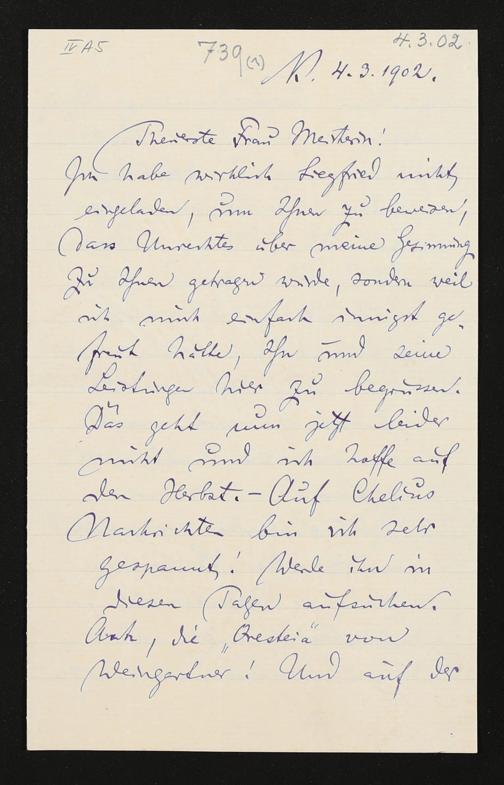 IV A 5
739 (1)
4.3.02
N. 4.3.1902.
Theuerste Frau Meisterin!
Ich habe wirklich Siegfried nicht
eingeladen, um Ihnen zu beweisen,
dass Unrechtes über meine Gesinnung
zu Ihnen getragen wurde, sondern weil
ich mich einfach innigst ge-
freut hätte, Ihn und seine
Leistungen hier zu begrüssen.
Das geht nun jetzt leider
nicht und ich hoffe auf
den Herbst. – Auf Chelius
Nachrichten bin ich sehr
gespannt! Werde ihn in
diesen Tagen aufsuchen.
Ach, die „Oresteia" von
Weingartner! Und auf der